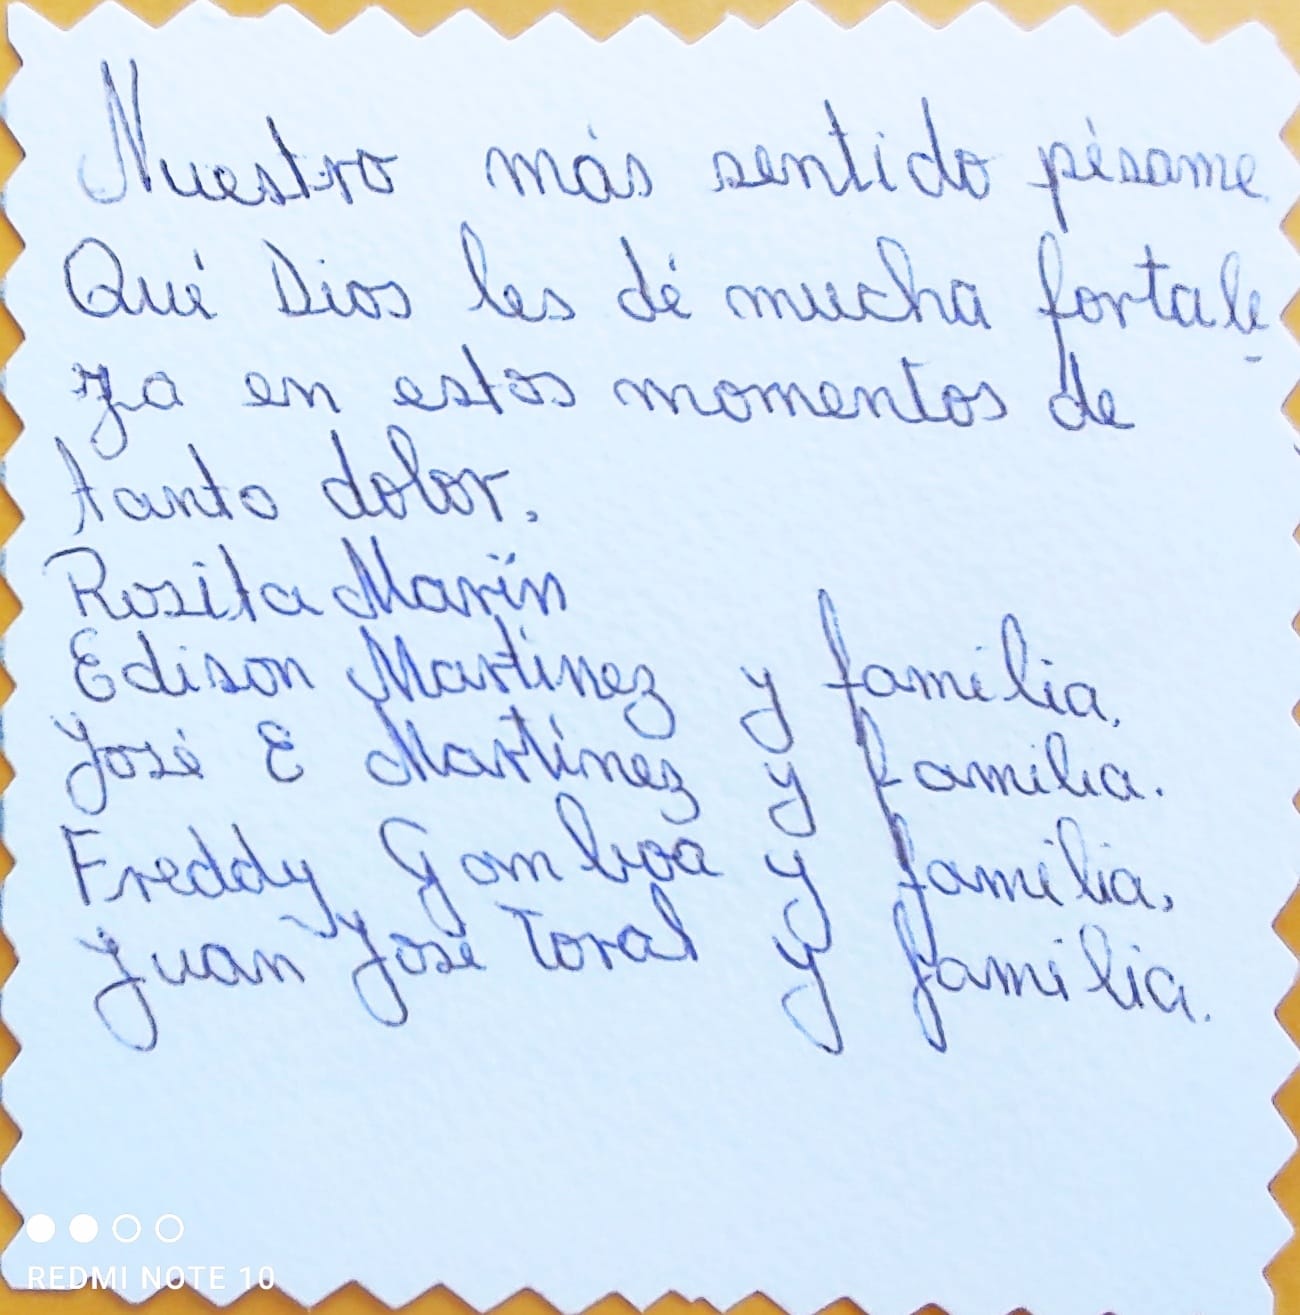 Nuestro más sentido pésame.
Qué Dios les dé mucha fortale-
za en estos momentos de
tanto dolor.
Rosita Marín
Edison Martínez y familia.
José E Martínez y familia.
Freddy Gamboa y familia.
Juan José Toral y familia.
REDMI NOTE 10